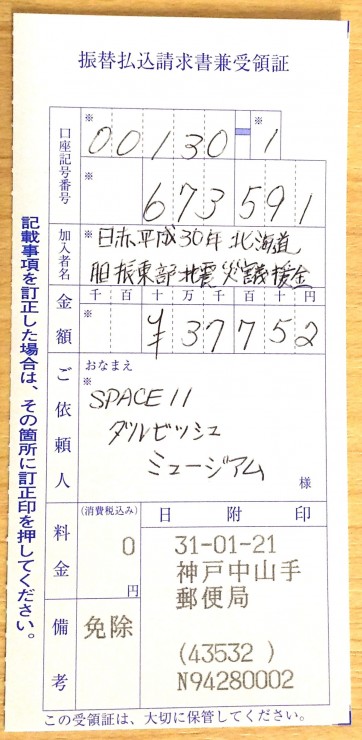 振替払込請求書兼受領証
口座記号番号
※ 00130-※1
※ 673591
加入者名
※ 日赤平成30年北海道
胆振東部地震災義援金
金額
千 百 十 万 千 百 十 円
※ ¥37752
ご依頼人
おなまえ
※
SPACE11
ダルビッシュ
ミュージアム
様
料金
(消費税込み)
0
円
備考
免除
日 附 印
31-01-21
神戸中山手
郵便局
(43532 )
N94280002
この受領証は、大切に保管してください。
記載事項を訂正した場合は、その箇所に訂正印を押してください。